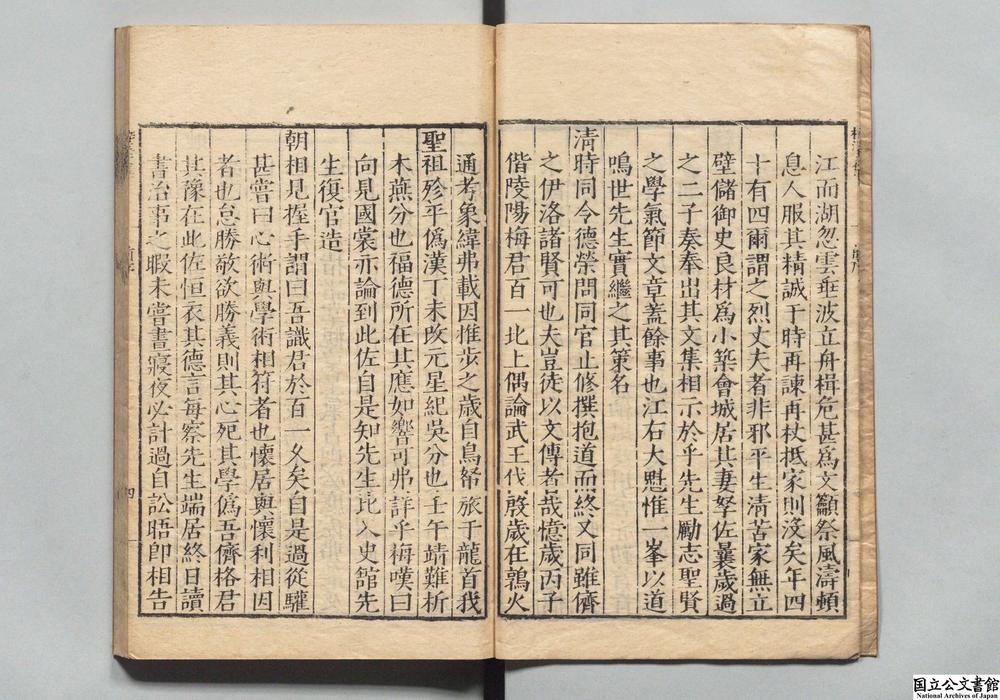 江而湖忽雲垂波立舟楫危甚爲文籲祭風濤頓
息人服其精誠于時再諫再杖抵家則沒矣年四
十有四爾謂之烈丈夫者非邪平生淸苦家無立
壁儲御史良材爲小築會城居其妻孥佐曩歲過
之二子奏奉出其文集相示於乎先生勵志聖賢
之學氣節文章蓋餘事也江右大魁惟一峯以道
鳴世先生實繼之其第名
淸時同令德榮問同官止修撰抱道而終又同雖儕
之伊洛諸賢可也夫豈徒以文傳者哉憶歲丙子
偕陵陽梅君百一北上偶論武王伐殷歲在鶉火
通考象緯弗載因推步之歲自鳥帑旅于龍首我
聖祖殄平僞漢丁未改元星紀吳分也壬午靖難析
木燕分也福德所在其應如響可弗詳乎梅嘆曰
向見國裳亦論到此佐自是知先生比入史館先
生復官造
朝相見握手謂曰吾識君於百一久矣自是過從驩
甚嘗曰心術與學術相符者也懷居與懷利相因
者也怠勝敬欲勝義則其心死其學僞吾儕格君
其豫在此佐恒衣其德言每察先生端居終日讀
書治事之暇未嘗晝寢夜必計過自訟晤卽相告
四
国立公文書館
National Archives of Japan